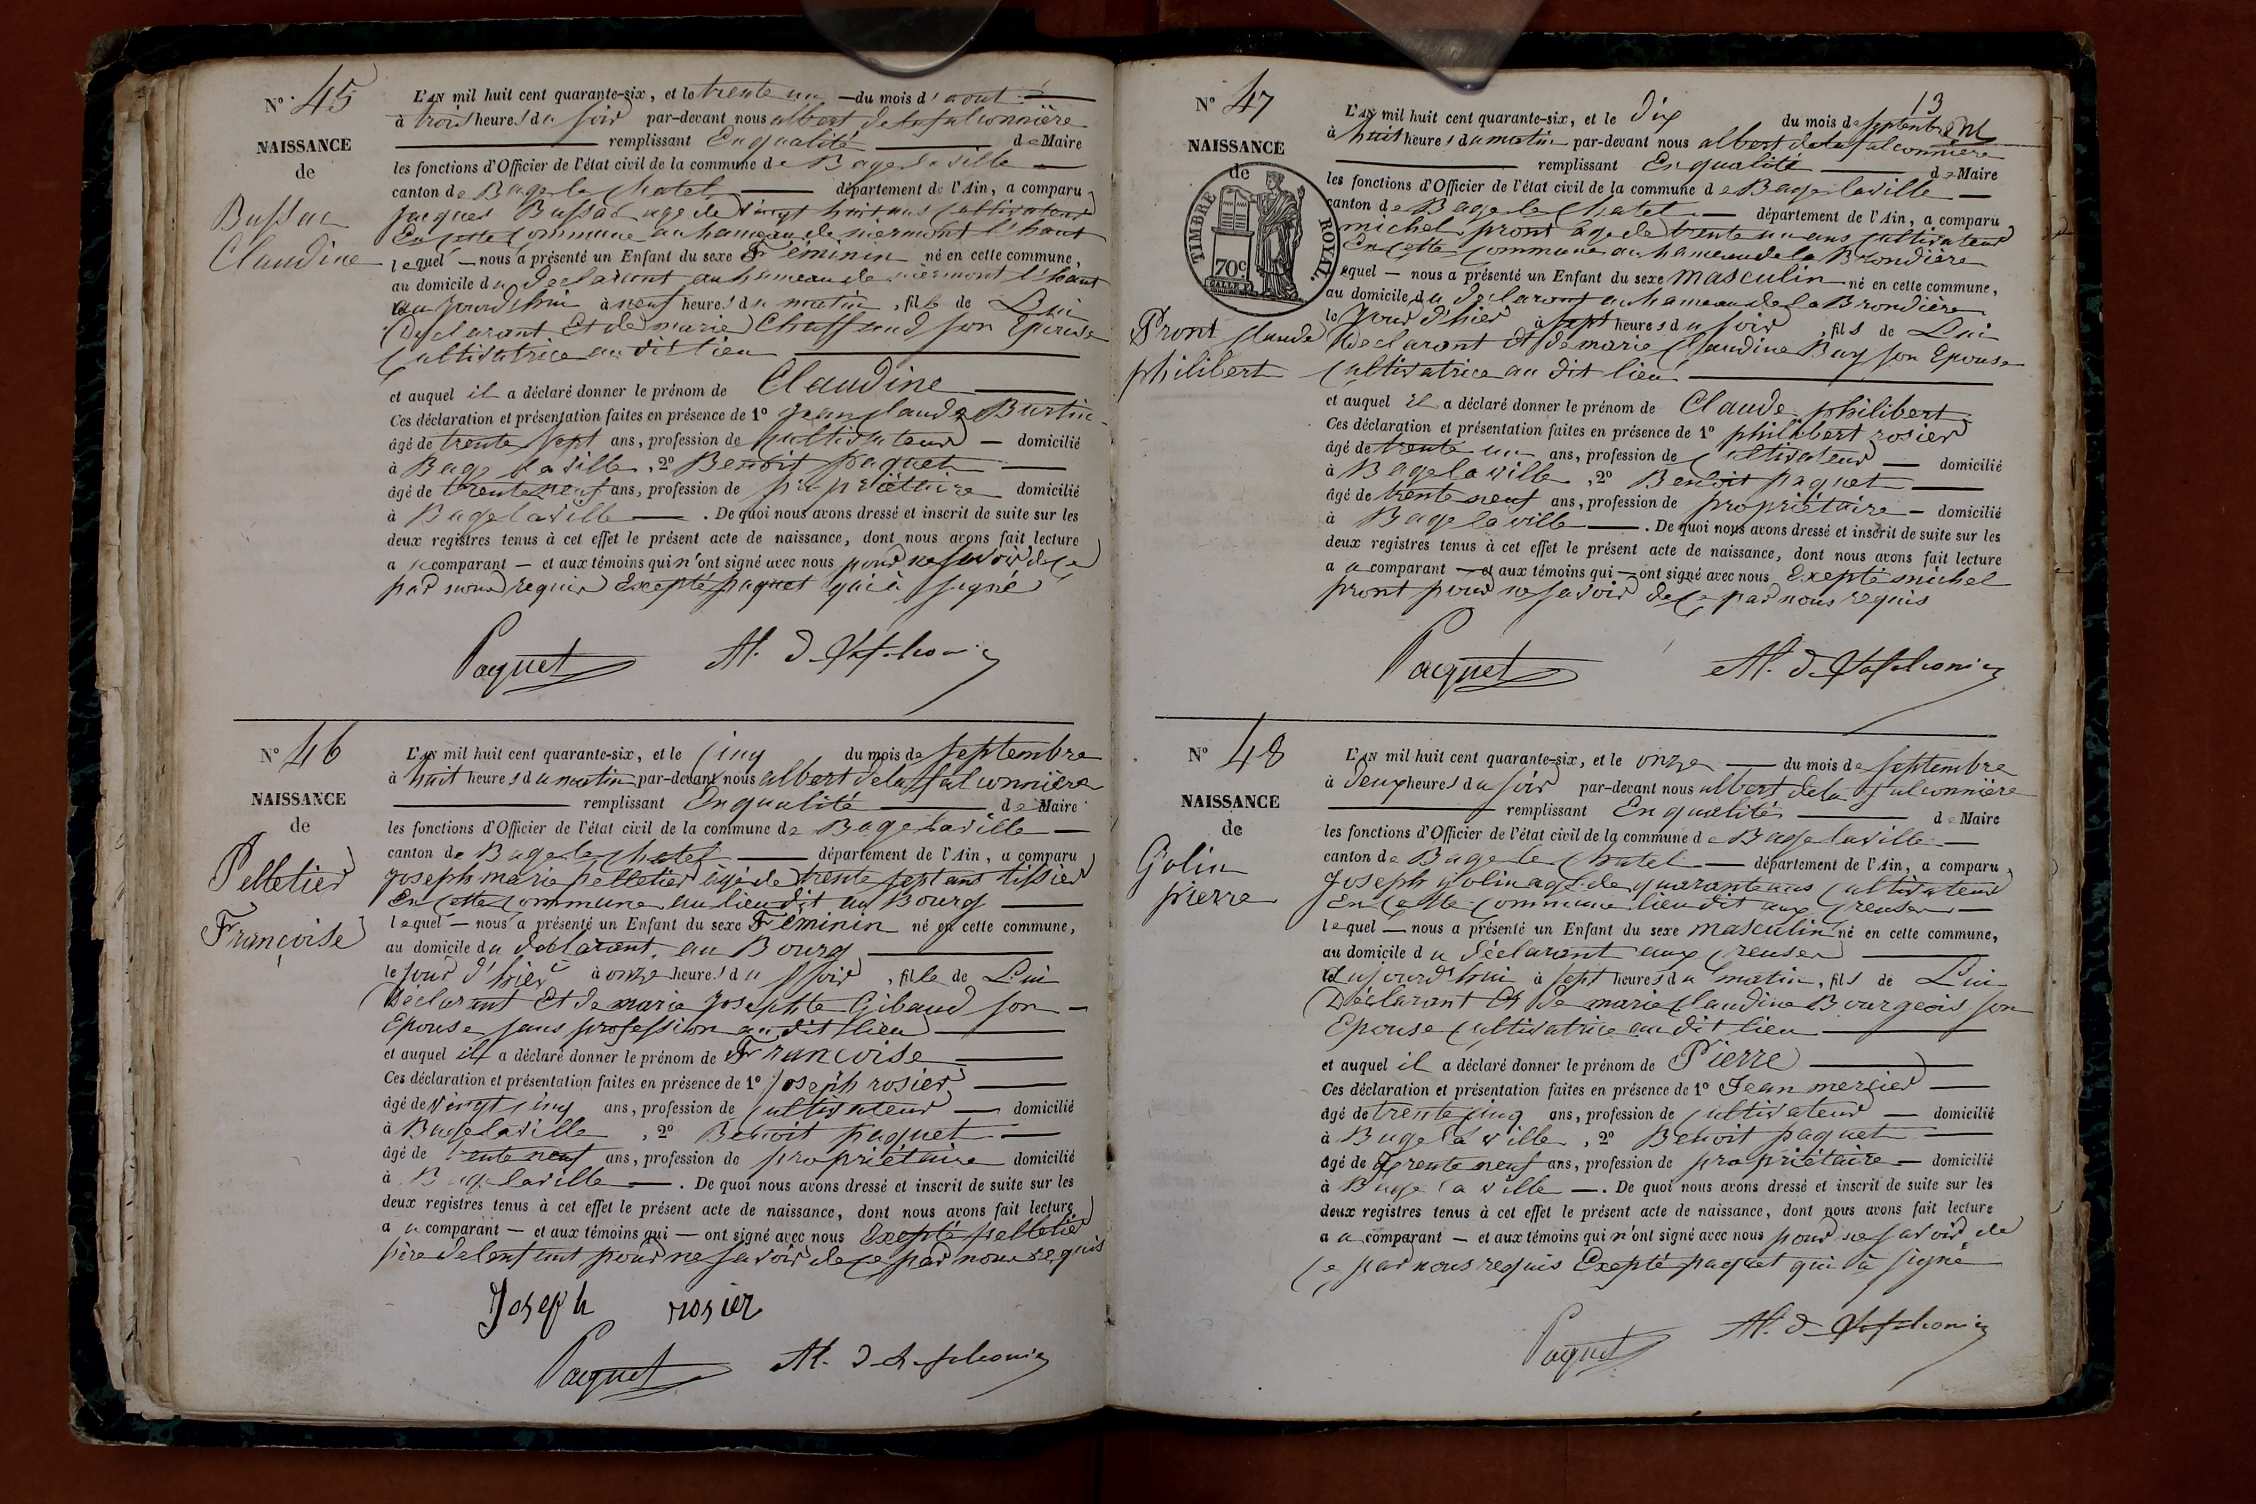 N° 45
NAISSANCE
de
Bussac
Claudine
L'AN mil huit cent quarante-six, et le trente un du mois d'aout
à trois heures du soir par-devant nous albert delafalconnière
remplissant En qualité de Maire
les fonctions d'Officier de l'état civil de la commune de Bage la ville
canton de Bage le Chatel département de l'Ain, a comparu
Jacques Bussac age de vingt huit ans cultivateur
En cette commune au hameau de mermont l'haut
lequel nous a présenté un Enfant du sexe Féminin né en cette commune,
au domicile du declarant au hameau de mermont l'haut
aujourd'hui à neuf heures du matin, fille de Lui
Declarant Et de marie son Epouse
Cultivatrice au dit lieu
et auquel il a déclaré donner le prénom de Claudine
Ces déclaration et présentation faites en présence de 1° Jean claude Burtin
âgé de trente sept ans, profession de Cultivateur domicilié
à Bage la ville, 2° Benoit paquet
âgé de trente neuf ans, profession de propriétaire domicilié
à Bage la ville. De quoi nous avons dressé et inscrit de suite sur les
deux registres tenus à cet effet le présent acte de naissance, dont nous avons fait lecture
au comparant et aux témoins qui n'ont signé avec nous pour ne savoir de ce
par nous requis Excepté paquet qui à signé
Paquet Al. de lafalconnier
N° 46
NAISSANCE
de
Pelletier
Françoise
L'AN mil huit cent quarante-six, et le cinq du mois de septembre
à huit heures du matin par-devant nous albert delafalconnière
remplissant En qualité de Maire
les fonctions d'Officier de l'état civil de la commune de Bage la ville
canton de Bage le chatel département de l'Ain, a comparu
Joseph marie pelletier âgé de trente sept ans tissier
En cette commune au lieu dit au Bourg
lequel nous a présenté un Enfant du sexe Féminin né en cette commune,
au domicile du declarant au Bourg
le jour d'hier à onze heures du soir, fille de Lui
Déclarant Et de marie Josephte Gibaud son
Epouse sans profession au dit lieu
et auquel il a déclaré donner le prénom de Francoise
Ces déclaration et présentation faites en présence de 1° Joseph rosier
âgé de vingt cinq ans, profession de cultivateur domicilié
à Bage la ville, 2° Benoit paquet
âgé de trente neuf ans, profession de propriétaire domicilié
à Bage la ville. De quoi nous avons dressé et inscrit de suite sur les
deux registres tenus à cet effet le présent acte de naissance, dont nous avons fait lecture
au comparant et aux témoins qui ont signé avec nous Excepté pelletier
père de lenfant pour ne savoir de ce par nous requis
Joseph rosier
Paquet Al. de lafalconnier
13
N° 47
NAISSANCE
de
TIMBRE ROYAL.
70c.
Pront claude
philibert
L'AN mil huit cent quarante-six, et le dix du mois de septembre
à huit heures du matin par-devant nous albert delafalconnière
remplissant En qualité de Maire
les fonctions d'Officier de l'état civil de la commune de Bage la ville
canton de Bage le chatel département de l'Ain, a comparu
michel pront âge de trente un ans cultivateur
En cette commune au hameau de la Brondière
lequel nous a présenté un Enfant du sexe masculin né en cette commune,
au domicile du declarant au hameau de la Brondière
le Jour d'hier à sept heures du soir, fils de Lui
declarant Et de marie Claudine Buy son Epouse
Cultivatrice au dit lieu
et auquel il a déclaré donner le prénom de Claude philibert
Ces déclaration et présentation faites en présence de 1° philibert rosier
âgé de trente un ans, profession de Cultivateur domicilié
à Bage la ville, 2° Benoit paquet
âgé de trente neuf ans, profession de propriétaire domicilié
à Bage la ville. De quoi nous avons dressé et inscrit de suite sur les
deux registres tenus à cet effet le présent acte de naissance, dont nous avons fait lecture
au comparant et aux témoins qui ont signé avec nous Exepté michel
pront pour ne savoir de ce par nous requis
Paquet Al. de lafalconnier
N° 48
NAISSANCE
de
Golin
pierre
L'AN mil huit cent quarante-six, et le onze du mois de septembre
à deux heures du soir par-devant nous albert delafalconnière
remplissant En qualité de Maire
les fonctions d'Officier de l'état civil de la commune de Bage la ville
canton de Bage le chatel département de l'Ain, a comparu
Joseph golin age de quarante ans cultivateur
En cette commune lieu dit aux creuses
lequel nous a présenté un Enfant du sexe masculin né en cette commune,
au domicile du déclarant aux creuses
aujourd'hui à sept heures du matin, fils de Lui
Déclarant Et de marie claudine Bourgeois son
Epouse cultivatrice au dit lieu
et auquel il a déclaré donner le prénom de Pierre
Ces déclaration et présentation faites en présence de 1° Jean mercier
âgé de trente cinq ans, profession de cultivateur domicilié
à Bage la ville, 2° Benoit paquet
âgé de trente neuf ans, profession de propriétaire domicilié
à Bage la ville. De quoi nous avons dressé et inscrit de suite sur les
deux registres tenus à cet effet le présent acte de naissance, dont nous avons fait lecture
au comparant et aux témoins qui n'ont signé avec nous pour ne savoir de
ce par nous requis Exepté paquet qui à signé
Paquet Al. de lafalconnier